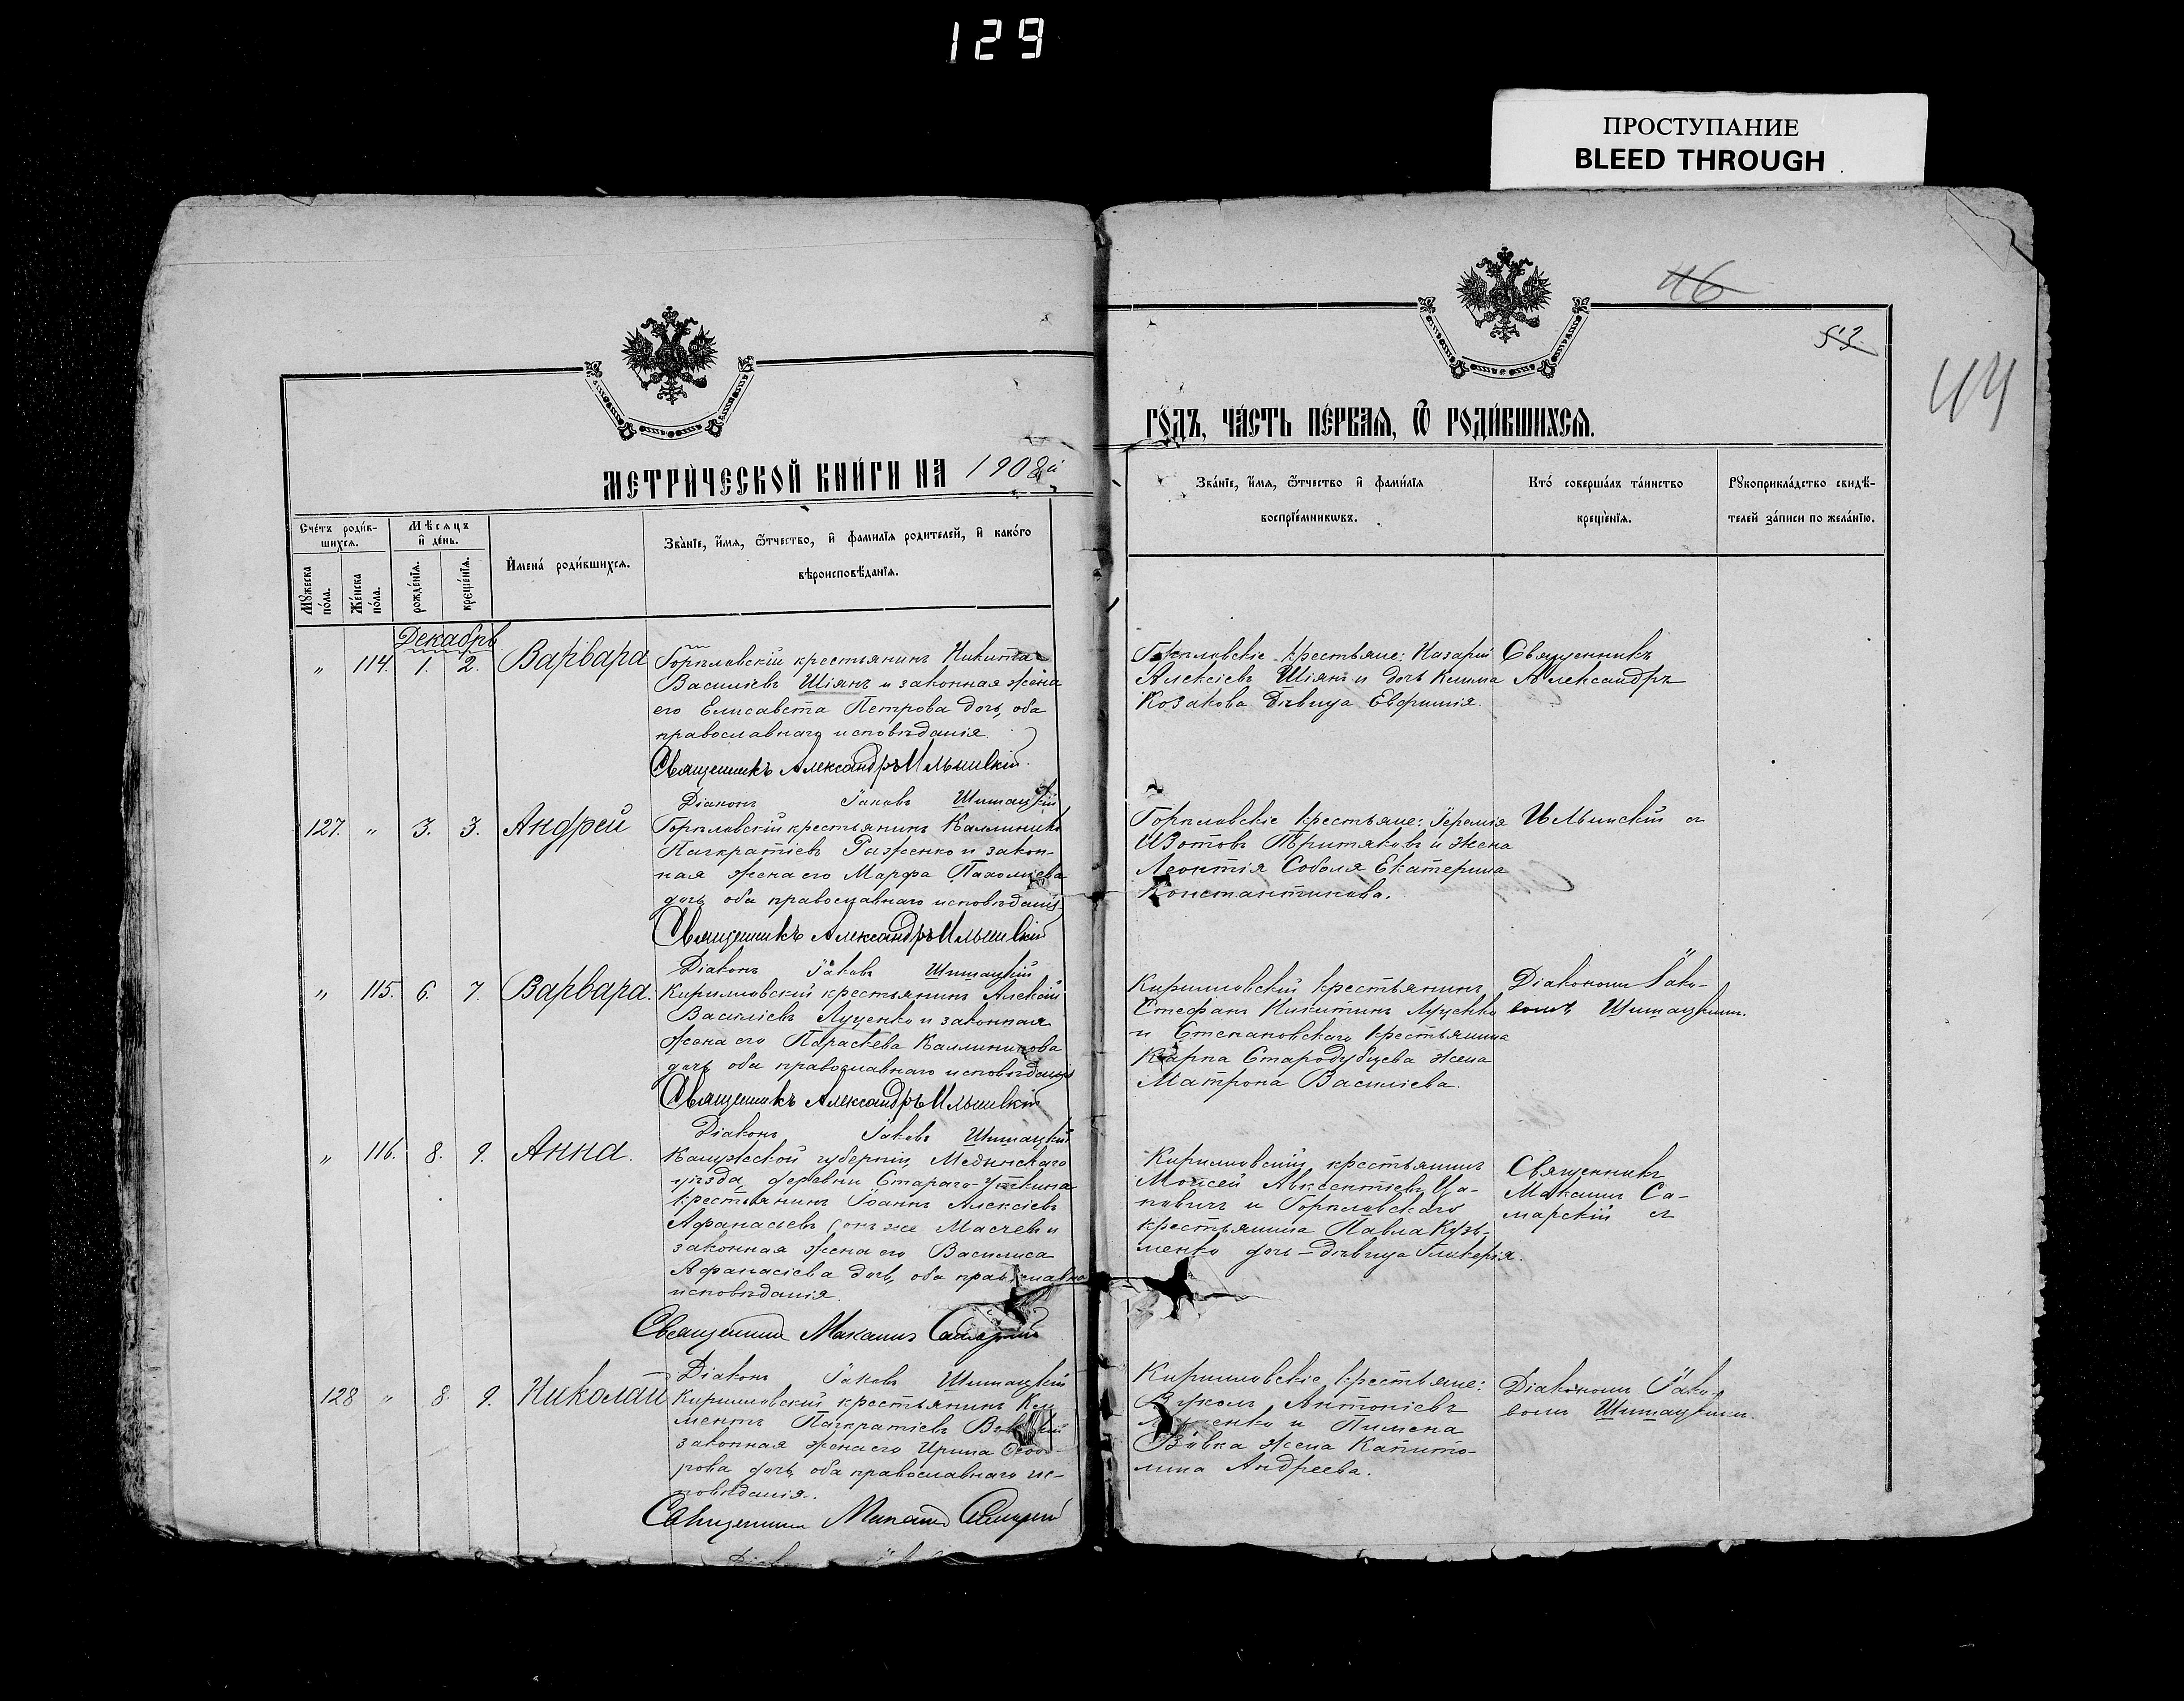 129
ПРОСТУПАНИЕ
BLEED THROUGH
46
53.
44
МЕТРИ́ЧЕСКОЙ КНИ́ГИ НА 1908й
ГО́ДЪ, ЧА́СТЬ ПЕ́РВАѦ, Ѿ РОДИ́ВШИХСѦ.
Сче́тъ роди́в-
шихсѧ.
Мꙋ́жеска по́ла.
Же́нска по́ла.
Мѣ́сѧцъ и҆ де́нь.
рожде́нїѧ.
креще́нїѧ.
И҆мена̀ роди́вшихсѧ.
Зва́нїе, и҆́мѧ, ѻ҆́тчество, и҆ фами́лїѧ роди́телей, и҆ како́гѡ
вѣроисповѣ́данїѧ.
Зва́нїе, и҆́мѧ, ѻ҆́тчество и҆ фами́лїѧ
воспрїе́мникѡвъ.
Кто̀ соверша́лъ та́инство
креще́нїѧ.
Рꙋкоприкла́дство свидѣ́-
телей за́писи по жела́нїю.
Декабрь
" 114. 1. 2. Варвара
Горѣловскій крестьянинъ Никита
Василіевъ Шіянъ и законная жена
его Елисавета Петрова дочь, оба
православнаго исповѣданія.
Священникъ Александръ Ильинскій.
Діаконъ Іаковъ Шишацкій
Горѣловскіе крестьяне: Назарій
Алексіевъ Шіянъ и дочь Клима
Козакова дѣвица Евфимія.
Священникъ
Александръ
127. " 3. 3. Андрей
Горѣловскій крестьянинъ Каллиникъ
Панкратіевъ Раженко и закон-
ная жена его Марфа
дочь, оба православнаго исповѣданія.
Священникъ Александръ Ильинскій
Діаконъ Іаковъ Шишацкій
Горѣловскіе крестьяне: Іеремія
Изотовъ Притяковъ и жена
Леонтія Соболя Екатерина
Константинова.
Ильинскій съ
" 115. 6. 7. Варвара.
Кирилловскій крестьянинъ Алексій
Василіевъ Луценко и законная
жена его Параскева Каллиникова
дочь, оба православнаго исповѣданія
Священникъ Александръ Ильинскій
Діаконъ Іаковъ Шишацкій
Кирилловскій крестьянинъ
Стефанъ Никитинъ Луценко
и Степановскаго крестьянина
Карпа Стародубцева жена
Матрона Василіева.
Діакономъ Іако-
вомъ Шишацкимъ.
" 116. 8. 9. Анна.
Калужской губерніи, Медынскаго
уѣзда, деревни Стараго-Уткина
крестьянинъ Іоаннъ Алексіевъ
Афанасьевъ (онъ же и
законная жена его Василиса
Афанасіева дочь, оба православнаго
исповѣданія.
Священникъ Максимъ Самарскій
Діаконъ Іаковъ Шишацкій
Кирилловскій крестьянинъ
Моисей Авксентіевъ Ца-
повичъ и Горѣловскаго
крестьянина Павла Кузь-
менко дочь - дѣвица Гликерія.
Священникъ
Максимъ Са-
марскій съ
128 " 8. 9. Николай
Кирилловскій крестьянинъ Кли
ментъ Панкратіевъ
законная жена его Ирина Ѳеодо-
рова дочь, оба православнаго ис-
повѣданія.
Священникъ Максимъ Самарскій
Кирилловскіе крестьяне:
Вуколъ Антоніевъ
и Пимена
Вовка жена Капито-
лина Андреева.
Діакономъ Іако-
вомъ Шишацкимъ.